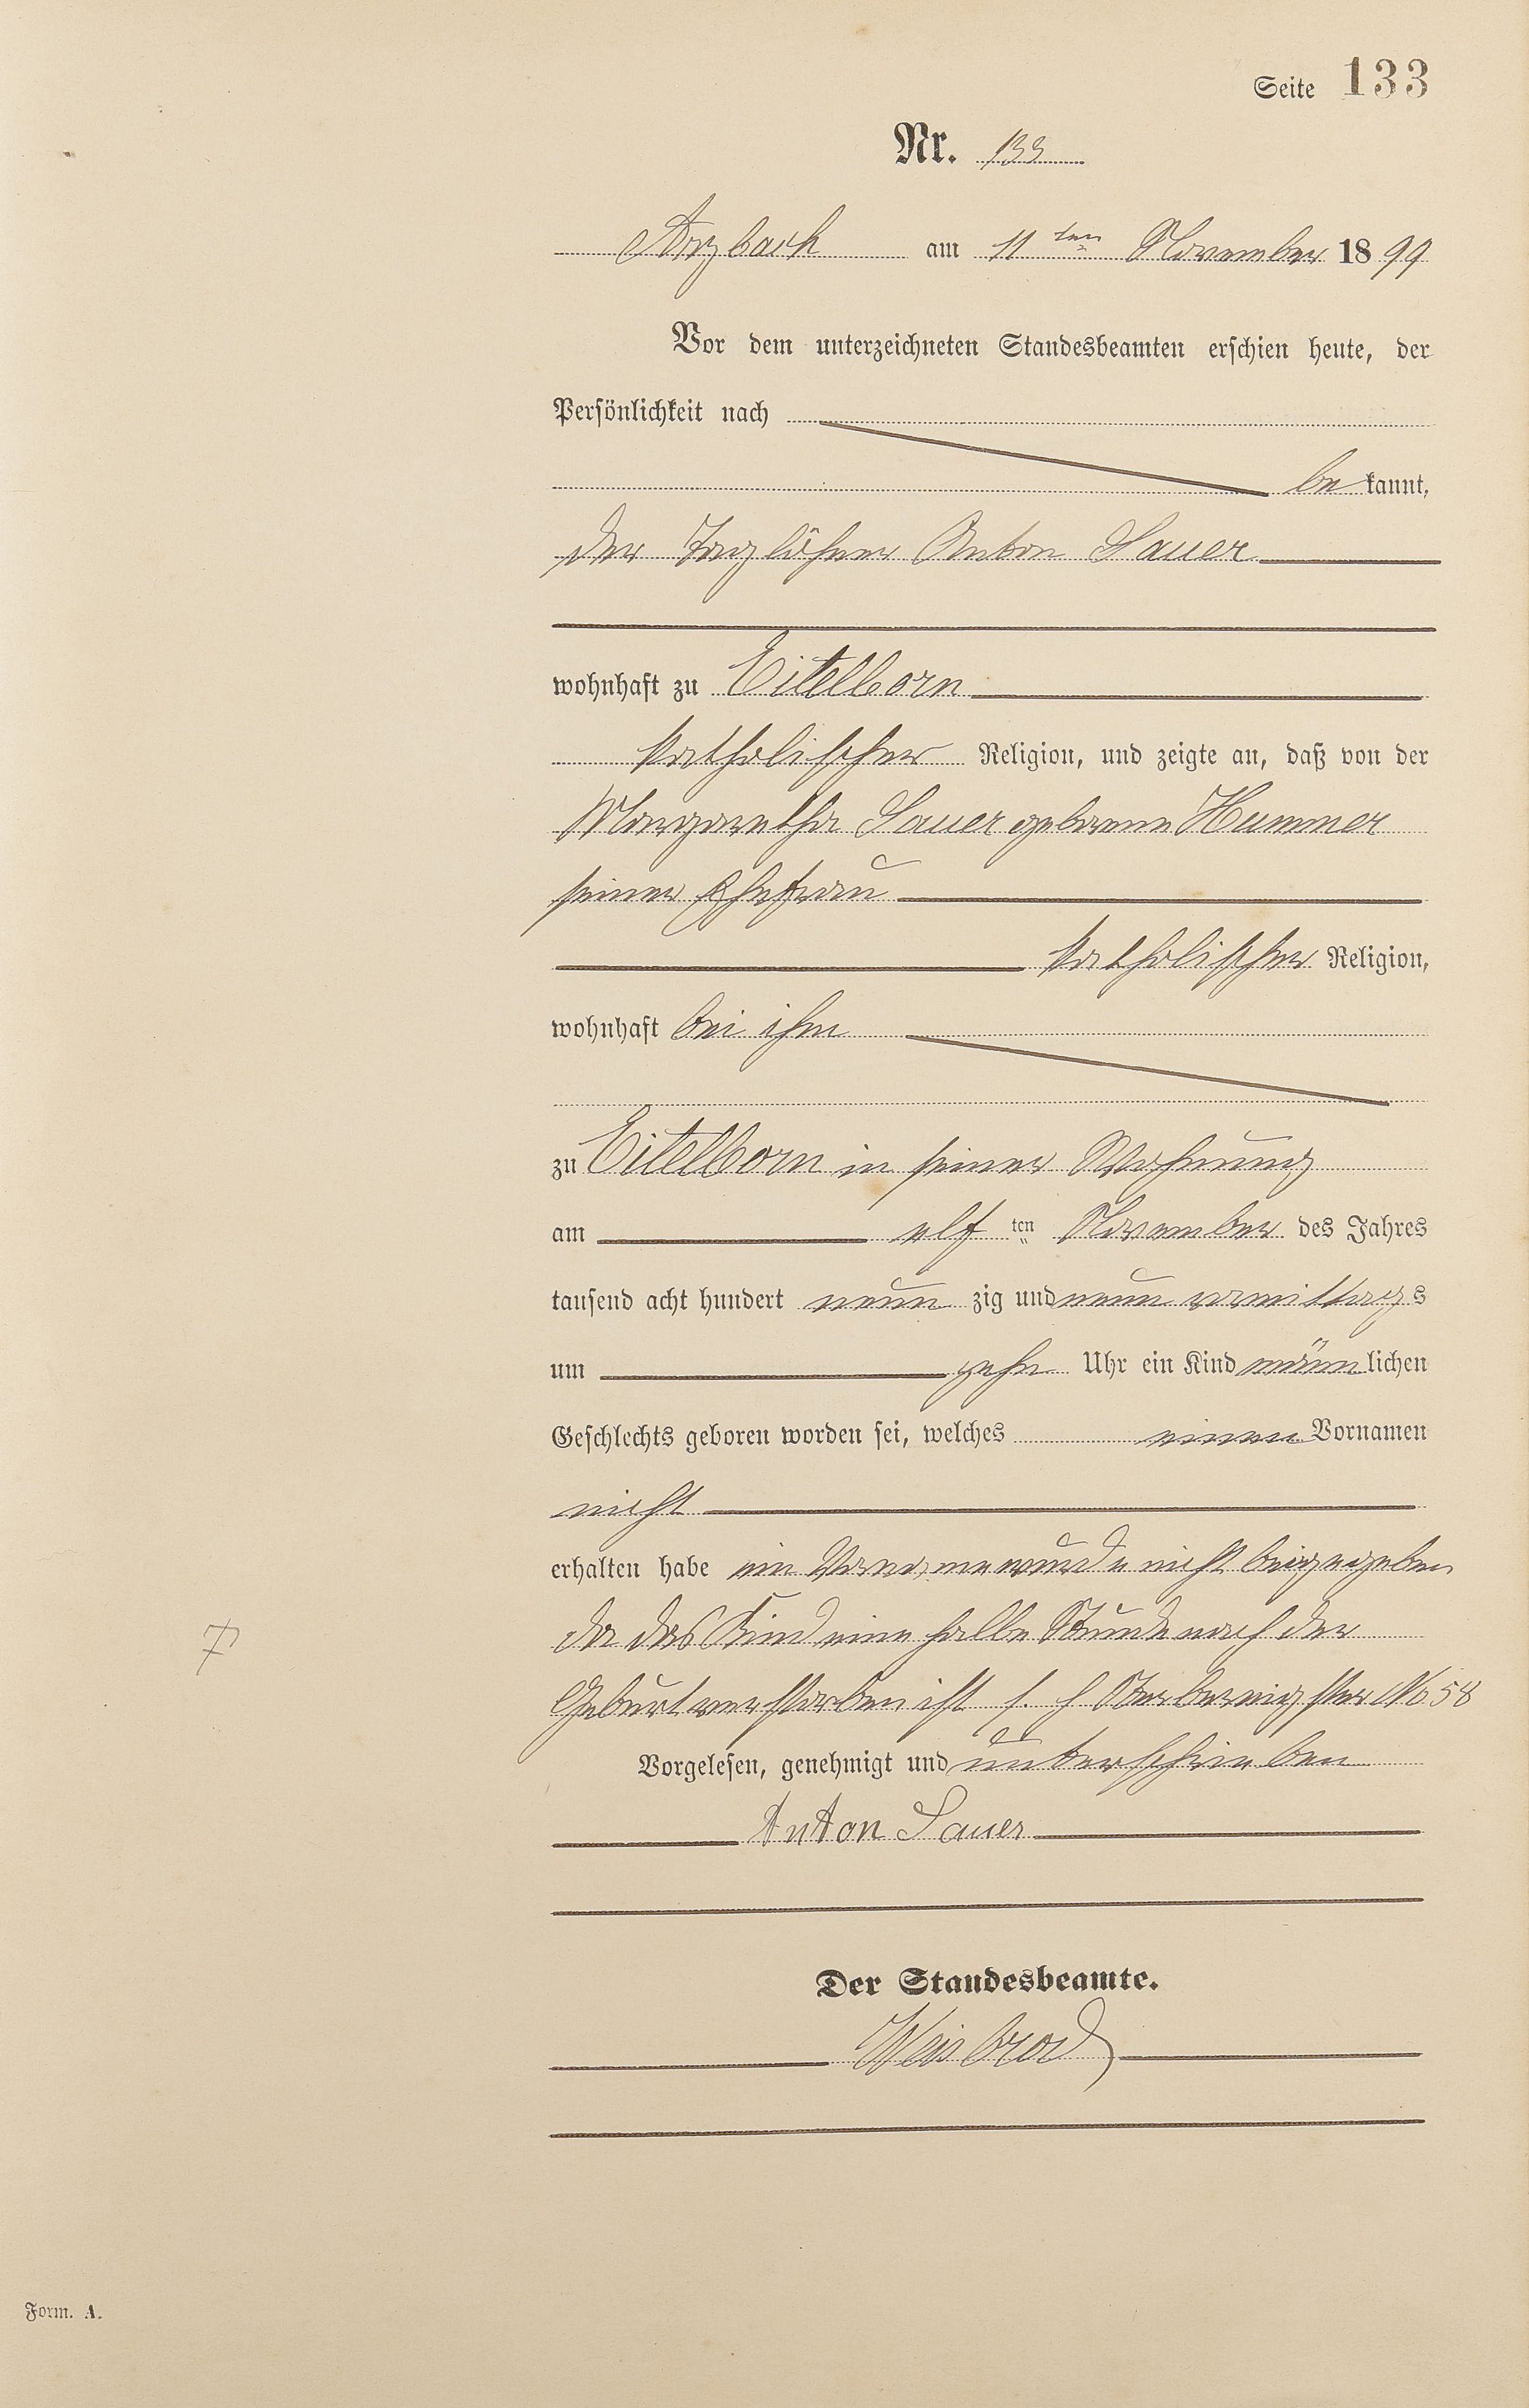 Seite 133
Nr. 133
Arzbach am 11 ten November 1899
Vor dem unterzeichneten Standesbeamten erschien heute, der
Persönlichkeit nach
be kannt,
der Taglöhner Anton Sauer
wohnhaft zu Eitelborn
katholischer Religion, und zeigte an, daß von der
Margaretha Sauer geborene Hummer
seiner Ehefrau
katholischer Religion,
wohnhaft bei ihm
zu Eitelborn in seiner Wohnung
am elf ten November des Jahres
tausend acht hundert neun zig und neun vormittags
um zehn Uhr ein Kind männlichen
Geschlechts geboren worden sei, welches einen Vornamen
nicht
erhalten habe ein Vorname wurde nicht beigegeben
da das Kind eine halbe Stunde nach der
Geburt verstorben ist s. h Sterberegister No 58
Vorgelesen, genehmigt und unterschrieben
Anton Sauer
Der Standesbeamte.
Weisbrod
Form. A.